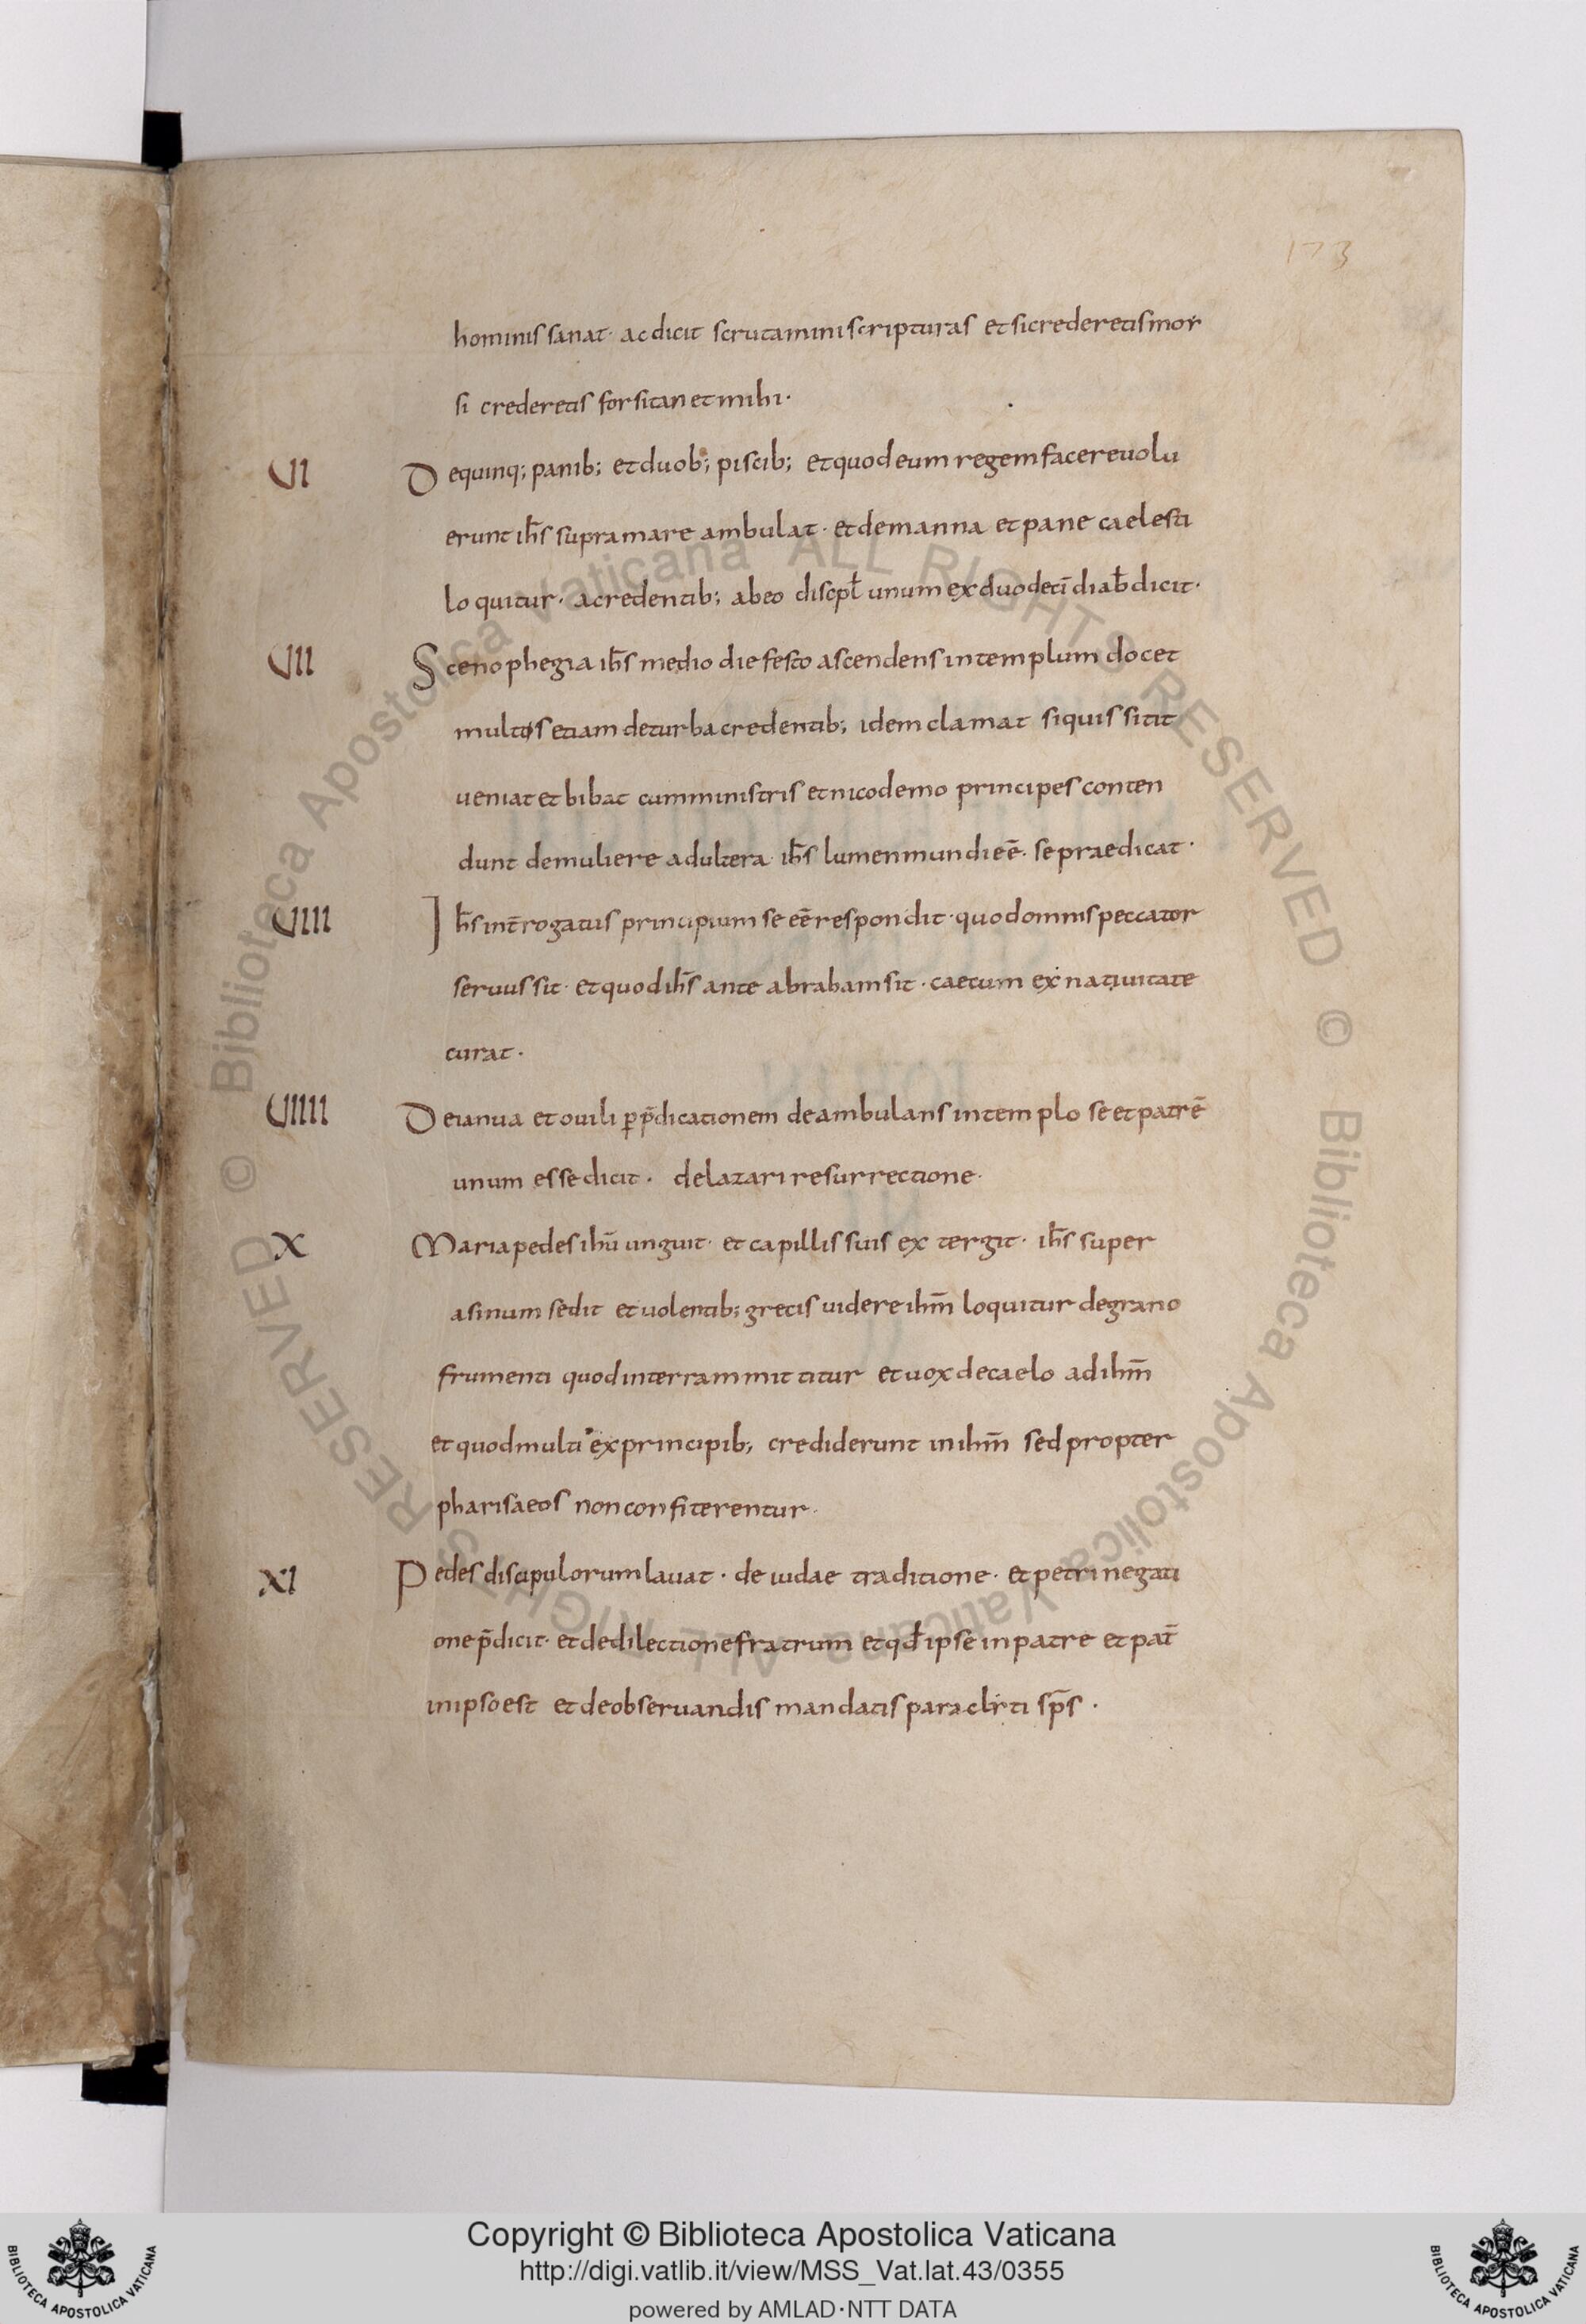 173
hominis sanat · ac dicit scrutamini scripturas et si crederetis mor
si crederetis forsitan et mihi ·
VI De quinq; panib; et duob; piscib; et quod eum regem facere volu
erunt ih̅s supra mare ambulat · et de manna et pane caelesti
loquitur · a credentib; ab eo discpl̅ unum ex duodeci̅ diab̅ dicit ·
VII Scenophegia ih̅s medio die festo ascendens in templum docet
multos etiam de turba credentib; idem clamat si quis sitit
veniat et bibat cum ministris et nicodemo principes conten
dunt de muliere adultera · ih̅s lumen mundi ee̅ · se praedicat ·
VIII Ih̅s int̅rogatus principium se ee̅ respondit · quod omnis peccator
servus sit · et quod ih̅s ante abraham sit · caecum ex nativitate
curat ·
VIIII De ianua et ovili p̱ p̅dicationem deambulans in templo se et patre̅
unum esse dicit · de lazari resurrectione ·
X Maria pedes ihu̅ unguit · et capillis suis extergit · ih̅s super
asinum sedit et volentib; grecis videre ihm̅ loquitur de grano
frumenti quod in terram mittitur et vox de caelo ad ihm̅
et quod multi ex principib; crediderunt in ihm̅ sed propter
pharisaeos non confiterentur ·
XI Pedes discipulorum lavat · de iudae traditione · et petri negati
one p̅dicit · et de dilectione fratrum et qd̅ ipse in patre et pat̅
in ipso est et de observandis mandatis paracliti sp̅s ·
© Biblioteca Apostolica Vaticana ALL RIGHTS RESERVED © Biblioteca Apostolica Vaticana ALL RIGHTS RESERVED
BIBLIOTECA APOSTOLICA VATICANA
Copyright © Biblioteca Apostolica Vaticana
http://digi.vatlib.it/view/MSS_Vat.lat.43/0355
powered by AMLAD·NTT DATA
BIBLIOTECA APOSTOLICA VATICANA